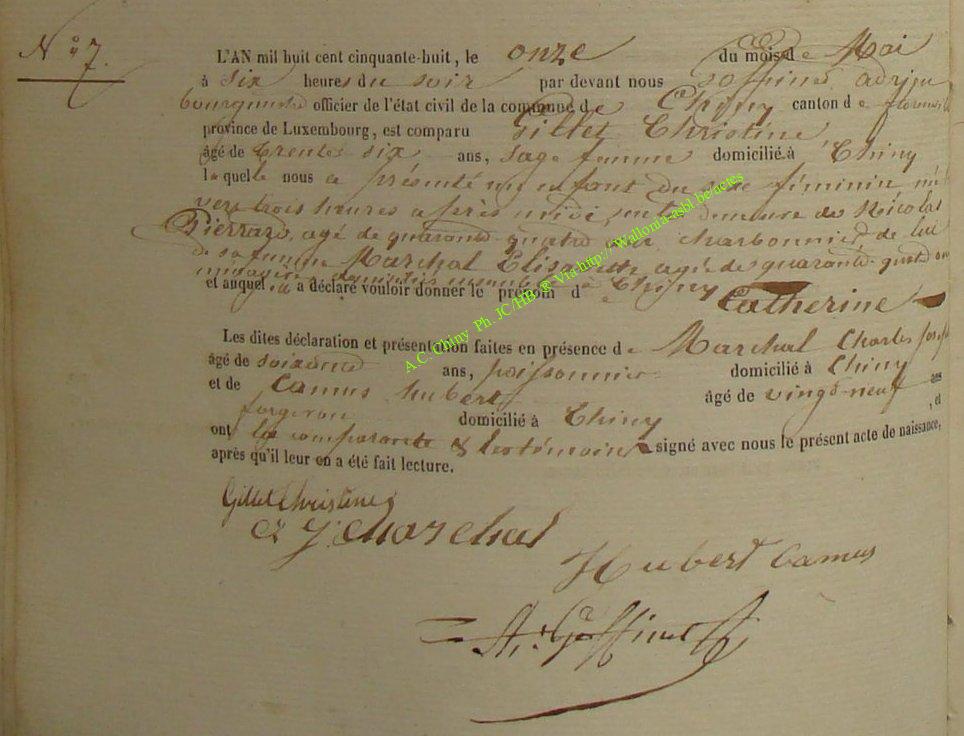 N° 7.
L'AN mil huit cent cinquante-huit, le onze du mois de Mai
à six heures du soir par devant nous Goffinet adrien
bourgmestre officier de l'état civil de la commune de Chiny canton de florenville
province de Luxembourg, est comparu Gillet Christine
âgé de trente six ans, sage femme domicilié à Chiny
laquelle nous a présenté un enfant du sexe féminin né
vers trois heures après midi, en la demeure de Nicolas
Pierrard, agé de quarante quatre ans charbonnier, de lui
de sa femme Marchal Elisabeth agée de quarante quatre ans
ménagère domiciliés ensemble à Chiny
et auquel a déclaré vouloir donner le prénom de Catherine
Les dites déclaration et présentation faites en présence de Marchal Charles Joseph
âgé de soixante ans, poissonnier domicilié à Chiny
et de Camus hubert âgé de vingt-neuf ans
forgeron domicilié à Chiny , et
ont la comparante & les témoins signé avec nous le présent acte de naissance,
après qu'il leur en a été fait lecture.
Gillet Christine
C J Marchal
Hubert Camus
A. Goffinet
A.C. Chiny Ph. JC/HB @ Via http://Wallonia-asbl.be/actes